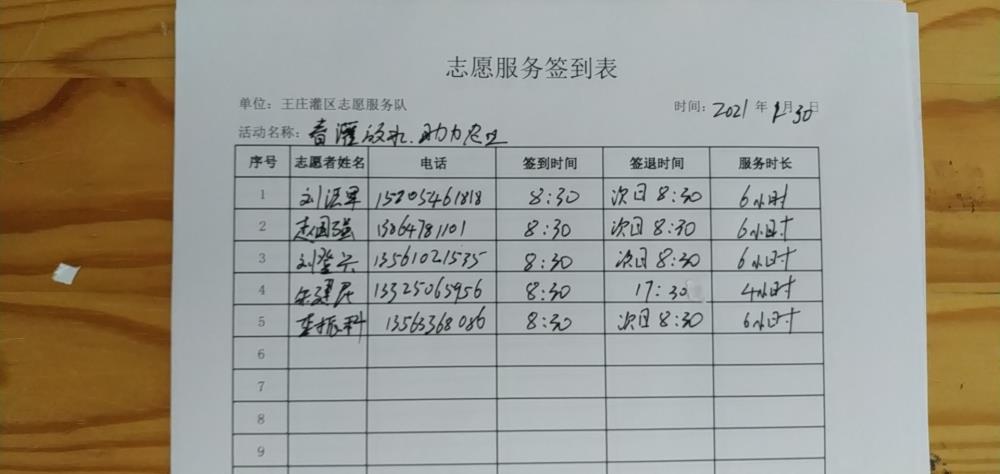 志愿服务签到表
单位：王庄灌区志愿服务队 时间：2021 年 月 30 日
活动名称：春灌放水、助力农业
序号 志愿者姓名 电话 签到时间 签退时间 服务时长
1 刘 军 15205461818 8:30 次日 8:30 6小时
2 赵国强 13864781101 8:30 次日 8:30 6小时
3 刘登云 13561021535 8:30 次日 8:30 6小时
4 宋建民 13325065956 8:30 17:30 4小时
5 李振科 13563368086 8:30 次日 8:30 6小时
6
7
8
9